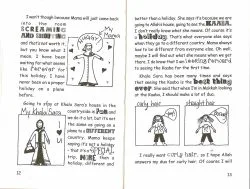 I won't though because Mama will just come back
into the room
SCREAMING
AND SHOUTING
and that isn't worth it.
I know now what I
mean. I have been
waiting for what seems
like forever for
this holiday. I have
never been on a proper
holiday on a plane
before.
My
Mama
Going to stay at Khala Sara's house in the
countryside is fun and
we do it a lot, but it's not
the same as going on a
plane to a DIFFERENT
country. Mama keeps
saying it's not a holiday
- that it's a SPECIAL
trip, MORE than a
holiday, different and
My Khala Sara
12
better than a holiday. She says it's because we are
going to Allah's house, going to see the KAABAH.
I don't really know what she means. Of course it's
a holiday. That's what everyone else says
when they go to a different country. Mama always
has to be different from everyone else. Oh well,
maybe I will find out what she means when we get
there. I do know that I am looking forward to
seeing the Kaaba for the first time.
Khala Sara has been many times and says
that seeing the Kaaba is the best thing
ever. She said that when I'm in Makkah looking
at the Kaaba, I should make a lot of duas.
curly hair
straight hair
I really want curly hair, so I hope Allah
answers my dua for curly hair. Of course I will
13